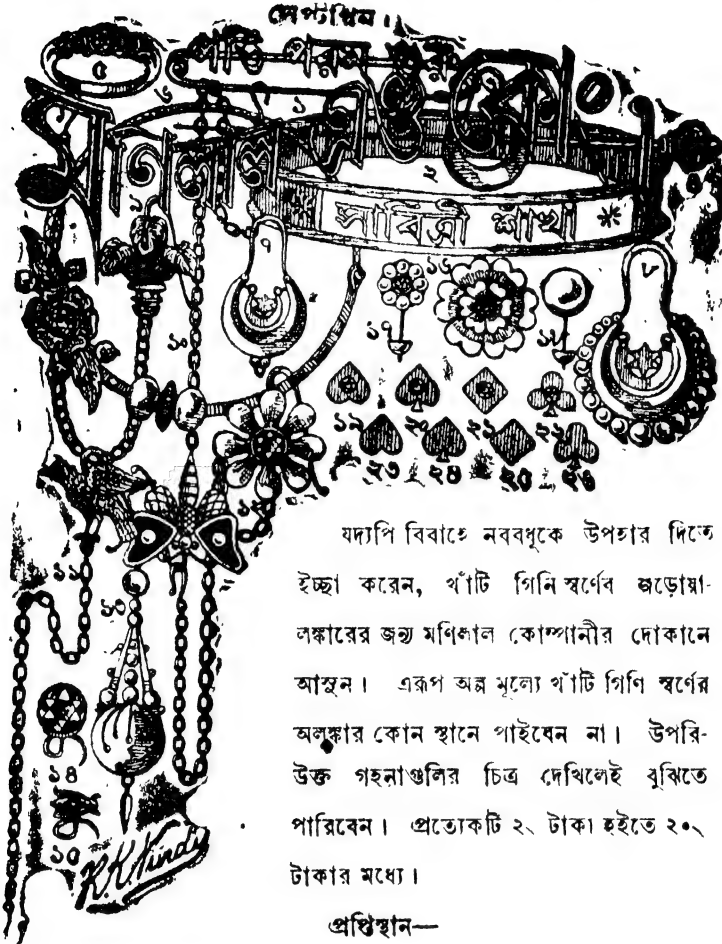 সেপ্টপিন।
পতি পরম গুরু
৫
৬
১
২
সাবিত্রী শাঁখা
৭
৮
১০
১৬
১৭
১৮
১৯ ২০ ২১ ২২
২৩ ২৪ ২৫ ২৬
১২
১১
১৩
১৪
১৫
K.K.Nundy
যদ্যপি বিবাহে নববধূকে উপহার দিতে
ইচ্ছা করেন, খাঁটি গিনি স্বর্ণের জড়োয়া-
লঙ্কারের জন্য মণিলাল কোম্পানীর দোকানে
আসুন। এরূপ অল্প মূল্যে খাঁটি গিণি স্বর্ণের
অলঙ্কার কোন স্থানে পাইবেন না। উপরি-
উক্ত গহনাগুলির চিত্র দেখিলেই বুঝিতে
পারিবেন। প্রত্যেকটি ২৲ টাকা হইতে ২০৲
টাকার মধ্যে।
প্রপ্তিস্থান—